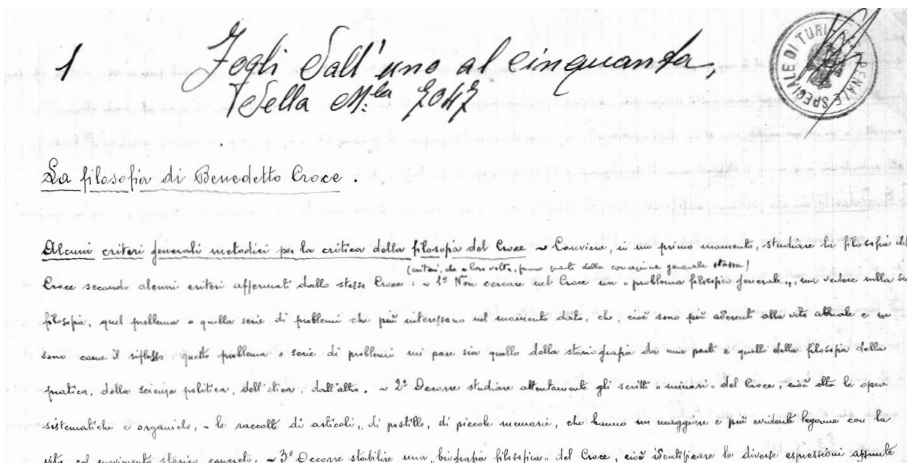 1
Fogli dall'uno al cinquanta,
della M.la 7047
TURI
PENALE SPECIALE DI
La filosofia di Benedetto Croce.
Alcuni criteri generali metodici per la critica della filosofia del Croce ~ Conviene, in un primo momento, studiare la filosofia del
(criteri, che a loro volta, fanno parte della concezione generale stessa)
Croce secondo alcuni criteri affermati dallo stesso Croce: ~ 1° Non cercare nel Croce un "problema filosofico generale", ma vedere nella sua
filosofia, quel problema o quella serie di problemi che più interessano nel momento dato, che, cioè sono più aderenti alla vita attuale e ne
sono come il riflesso: questo problema o serie di problemi mi pare sia quello della storiografia da una parte e quello della filosofia della
pratica, della scienza politica, dell'etica, dall'altra. ~ 2° Occorre studiare attentamente gli scritti "minori" del Croce, cioè oltre le opere
sistematiche e organiche, le raccolte di articoli, di postille, di piccole memorie, che hanno un maggiore e più evidente legame con la
vita, col movimento storico concreto. ~ 3° Occorre stabilire una "biografia filosofica" del Croce, cioè identificare le diverse espressioni assunte